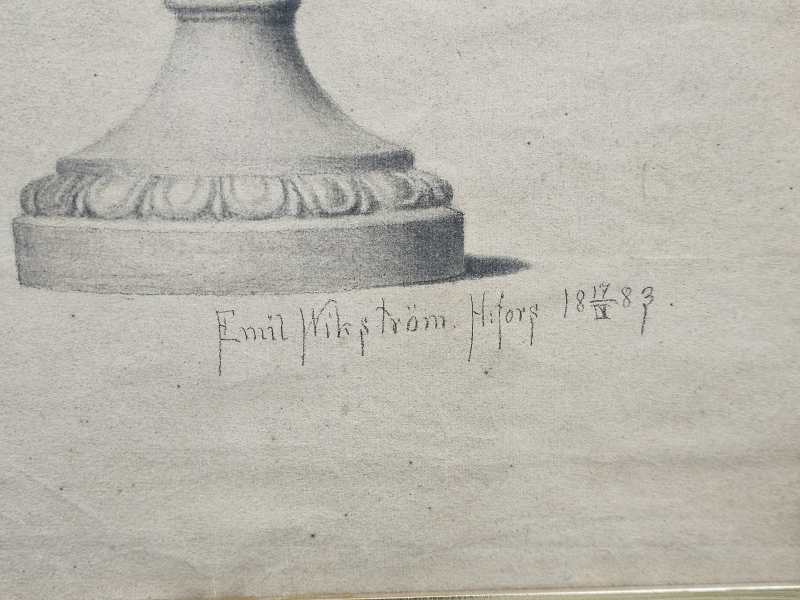 Emil Wikström. H:fors 18 17/IV 83.